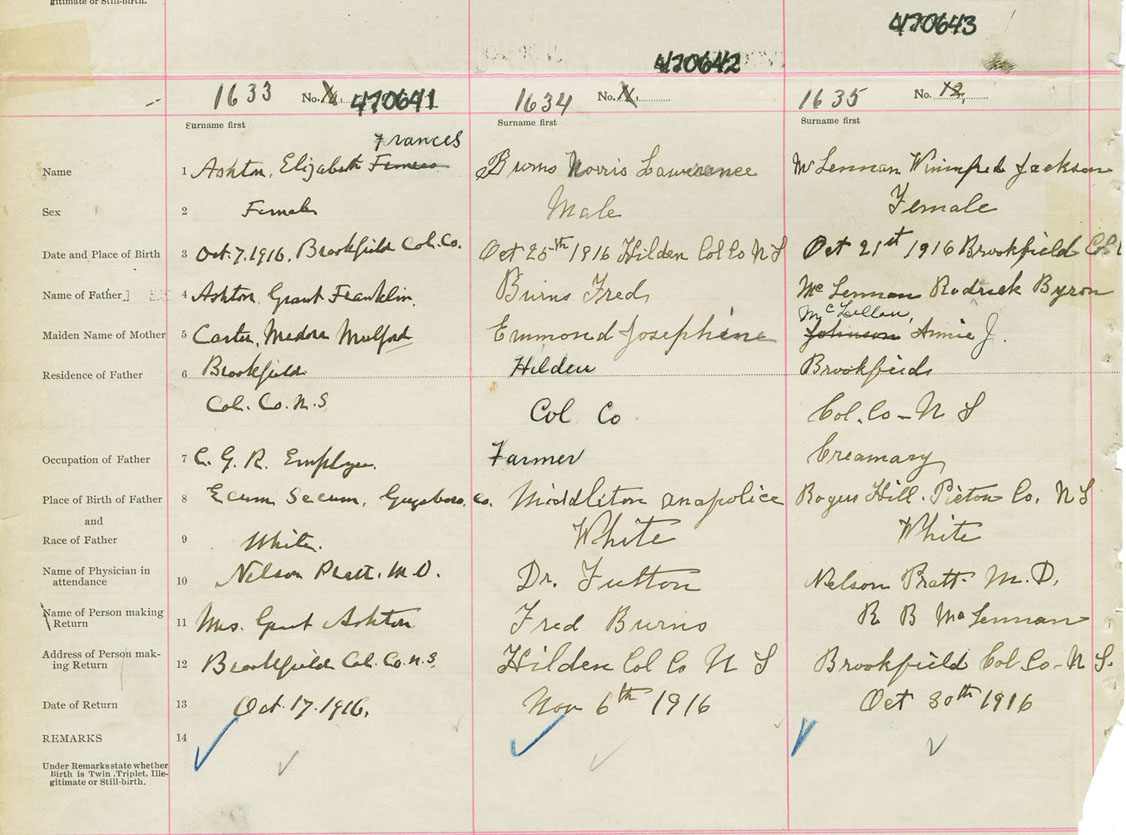 gitimate or Still-birth.
470643
470642
1633 No. 470641 1634 No. 11, 1635 No. 12,
Surname first Surname first Surname first
Frances
Name 1 Ashton, Elizabeth Burns Norris Lawerence McLennan Winnifred Jackson
Sex 2 Female Male Female
Date and Place of Birth 3 Oct. 7. 1916. Brookfield Col. Co. Oct 25th 1916 Hilden Col Co N S Oct 21st 1916 Brookfield Col.
Name of Father 4 Ashton, Grant Franklin. Burns Fred Mc Lennan Rodrick Byron
McLellan,
Maiden Name of Mother 5 Carter, Medora Mulford Emmond Josephine Johnson Annie J.
Residence of Father 6 Brookfield Hilden Brookfield
Col. Co. N. S Col Co Col. Co - N S
Occupation of Father 7 C. G. R. Employee. Farmer Creamary
Place of Birth of Father 8 Ecum Secum, Guysboro, Co. Middleton anapolice Rogers Hill. Picton Co. N S
and
Race of Father 9 White. White White
Name of Physician in
attendance 10 Nelson Pratt. M.D. Dr. Futton Nelson Pratt M. D.
Name of Person making
Return 11 Mrs. Grant Ashton Fred Burns R B McLennan
Address of Person mak-
ing Return 12 Brookfield Col. Co. N. S. Hilden Col Co N S Brookfield Col Co - N S.
Date of Return 13 Oct. 17. 1916. Nov 6th 1916 Oct 30th 1916
REMARKS 14
Under Remarks state whether
Birth is Twin, Triplet, Ille-
gitimate or Still-birth.